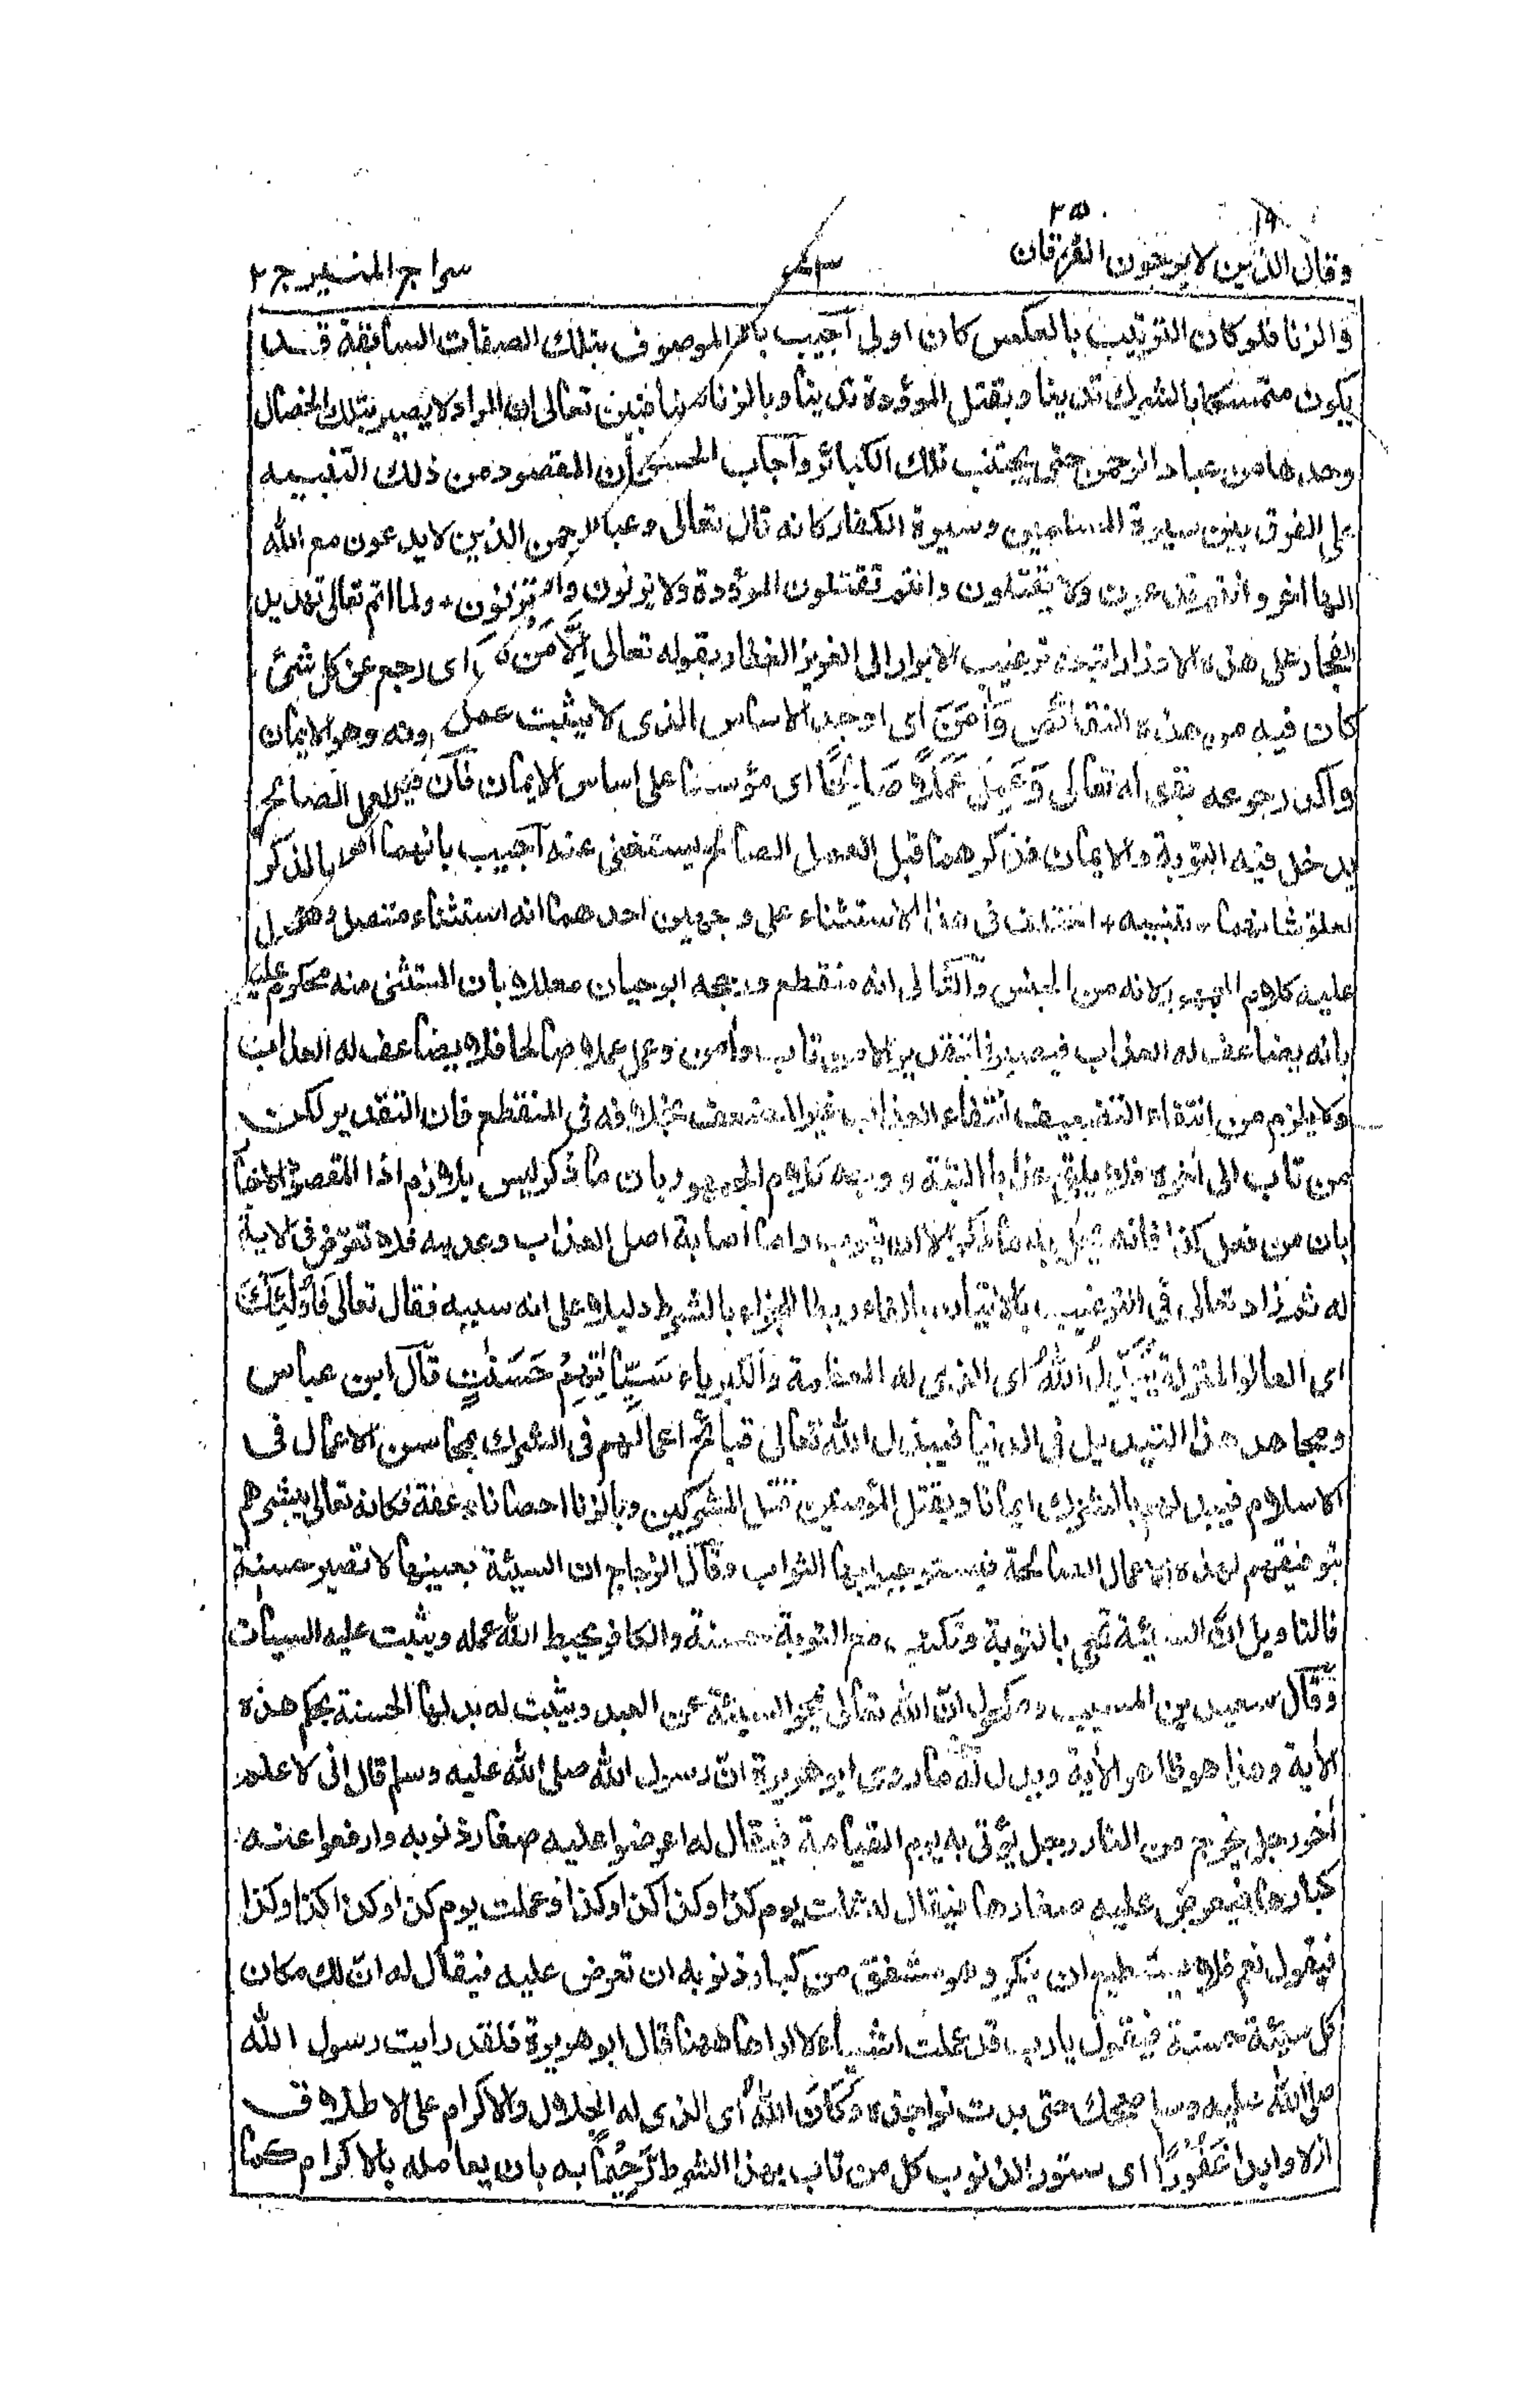 ١٩ ٢٥
وقال الذين لا يرجون الفرقان ٤٣ سراج المنير ج ٢
والزنا فلو كان الترتيب بالعكس كان اولى اجيب بان الموصوف بتلك الصفات السابقة قد
يكون متمسكا بالشرك تدينا وبقتل الموؤدة تدينا وبالزنا تدينا فبين تعالى ان المراد لا يصير بتلك الخصال
وحدها من عباد الرحمن حتى يجتنب تلك الكبائر وآجاب الحسن بأن المقصود من ذلك التنبيه
على الفرق بين سيرة المسلمين وسيرة الكفار كانه قال تعالى وعباد الرحمن الذين لا يدعون مع الله
الها اخر وانتم تدعون ولا يقتلون وانتم تقتلون الموؤدة ولا يزنون وانتم تزنون ولما اتم تعالى تهديد
الفجار على هذه الاوزار اتبعه ترغيب الابرار الى العزيز الغفار بقوله تعالى إِلَّا مَنْ تَابَ اى رجع عن كل شئ
كان فيه من هذه النقائص وَاٰمَنَ اى اوجد الاساس الذى لا يثبت عمل بدونه وهو الايمان
واكد رجوعه بقوله تعالى وَعَمِلَ عَمَلًا صَالِحًا اى مؤسسا على اساس الايمان فان قيل العمل الصالح
يدخل فيه التوبة والايمان فذكرهما قبل العمل الصالح يستغنى عنه اجيب بانهما افردا بالذكر
لعلو شانهما تنبيه اختلف فى هذا الاستثناء على وجهين احدهما انه استثناء متصل وهو ل
عليه كلام الجمهور لانه من الجنس والثانى انه منقطع ورجحه ابو حيان معللا بان المستثنى منه محكوم عليه
بانه يضاعف له العذاب فيصير التقدير الا من تاب وامن وعمل عملا صالحا فلا يضاعف له العذاب
ولا يلزم من انتفاء التضعيف انتفاء العذاب غير المضعف بخلافه فى المنقطع فان التقدير لكن
من تاب الى اخره فلا يلقى عذابا البتة ووجه كلام الجمهور بان ما ذكر ليس بلازم اذ المقصود الاخبار
بان من فعل كذا فانه يحل به ما ذكر الا ان يتوب واما اصابة اصل العذاب وعدمه فلا تعرض فى الاية
له ثم زاد تعالى فى الترغيب بالاتيان بالفاء ربطا للجزاء بالشرط دليلا على انه سببه فقال تعالى فَأُولٰئِكَ
اى العالو المنزلة يُبَدِّلُ اللّٰهُ اى الذى له العظمة والكبرياء سَيِّاٰتِهِمْ حَسَنٰتٍ قال ابن عباس
ومجاهد هذا التبديل فى الدنيا فيبدل الله تعالى قبائح اعمالهم فى الشرك بمحاسن الاعمال فى
الاسلام فيبدلهم بالشرك ايمانا وبقتل المؤمنين قتل المشركين وبالزنا احصانا وعفة فكانه تعالى يبشرهم
بتوفيقهم لهذه الاعمال الصالحة فيستوجبوا بها الثواب وقال الزجاج ان السيئة بعينها لا تصير حسنة
فالتاويل ان السيئة تمحى بالتوبة وتكتب مع التوبة حسنة والكافر يحبط الله عمله ويثبت عليه السيات
وقال سعيد بن المسيب ومكحول ان الله تعالى يمحو السيئة عن العبد ويثبت له بدلها الحسنة بحكم هذه
الآية وهذا هو ظاهر الآية ويدل له ما روى ابو هريرة ان رسول الله صلى الله عليه وسلم قال انى لا علم
اخر رجل يخرج من النار رجل يؤتى به يوم القيامة فيقال له اعرضوا عليه صغار ذنوبه وارفعوا عنه
كبارها فيعرض عليه صغارها فيقال له عملت يوم كذا وكذا كذا وكذا وعملت يوم كذا وكذا كذا وكذا
فيقول نعم فلا يستطيع ان ينكر وهو مشفق من كبار ذنوبه ان تعرض عليه فيقال له ان لك مكان
كل سيئة حسنة فيقول يا رب قد عملت اشياء لا اراها ههنا قال ابو هريرة فلقد رايت رسول الله
صلى الله عليه وسلم ضحك حتى بدت نواجذه وَكَانَ اللّٰهُ اى الذى له الجلال والاكرام على الاطلاق
ازلا وابدا غَفُوْرًا اى ستور الذنوب كل من تاب بهذا الشرط رَّحِيْمًا به بان يعامله بالاكرام كما